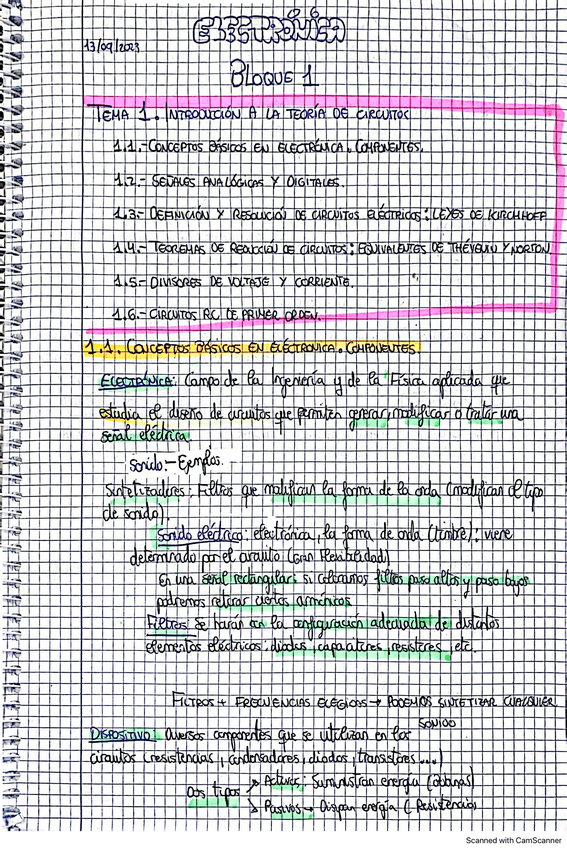 ELECTRÓNICA
13/09/2023
BLOQUE 1
TEMA 1. INTRODUCCIÓN A LA TEORÍA DE CIRCUITOS
1.1.- CONCEPTOS BÁSICOS EN ELECTRÓNICA. COMPONENTES.
1.2.- SEÑALES ANALÓGICAS Y DIGITALES.
1.3.- DEFINICIÓN Y RESOLUCIÓN DE CIRCUITOS ELÉCTRICOS: LEYES DE KIRCHHOFF
1.4.- TEOREMAS DE REDUCCIÓN DE CIRCUITOS: EQUIVALENTES DE THÉVENIN Y NORTON
1.5.- DIVISORES DE VOLTAJE Y CORRIENTE.
1.6.- CIRCUITOS RC DE PRIMER ORDEN.
1.1. CONCEPTOS BÁSICOS EN ELÉCTRONICA. COMPONENTES.
ELECTRÓNICA: Campo de la Ingeniería y de la Física aplicada que
estudia el diseño de circuitos que permiten generar, modificar o tratar una
señal eléctrica.
Sonido:- Ejemplos.
Sintetizadores: Filtros que modifican la forma de la onda (modifican el tipo
de sonido).
Sonido eléctrico: electrónica, la forma de onda (timbre): viene
determinado por el circuito (Gran Flexibilidad)
En una señal rectangular: si colocamos filtros paso altos y paso bajos
podremos retirar ciertos armónicos.
Filtros se harán con la configuración adecuada de distintos
elementos eléctricos: diodos, capacitores, resistores, etc.
FILTROS + FRECUENCIAS ELEGIDAS → PODEMOS SINTETIZAR CUALQUIER
SONIDO
DISPOSITIVO: diversos componentes que se utilizan en los
circuitos (resistencias, condensadores, diodos, transistores...)
Dos tipos → Activos: Suministran energía (baterías)
→ Pasivos → Disipan energía (Resistencias)
Scanned with CamScanner